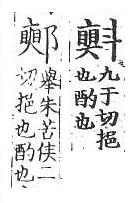 九于切挹
也酌也
舉朱苦侠二
切挹也酌也